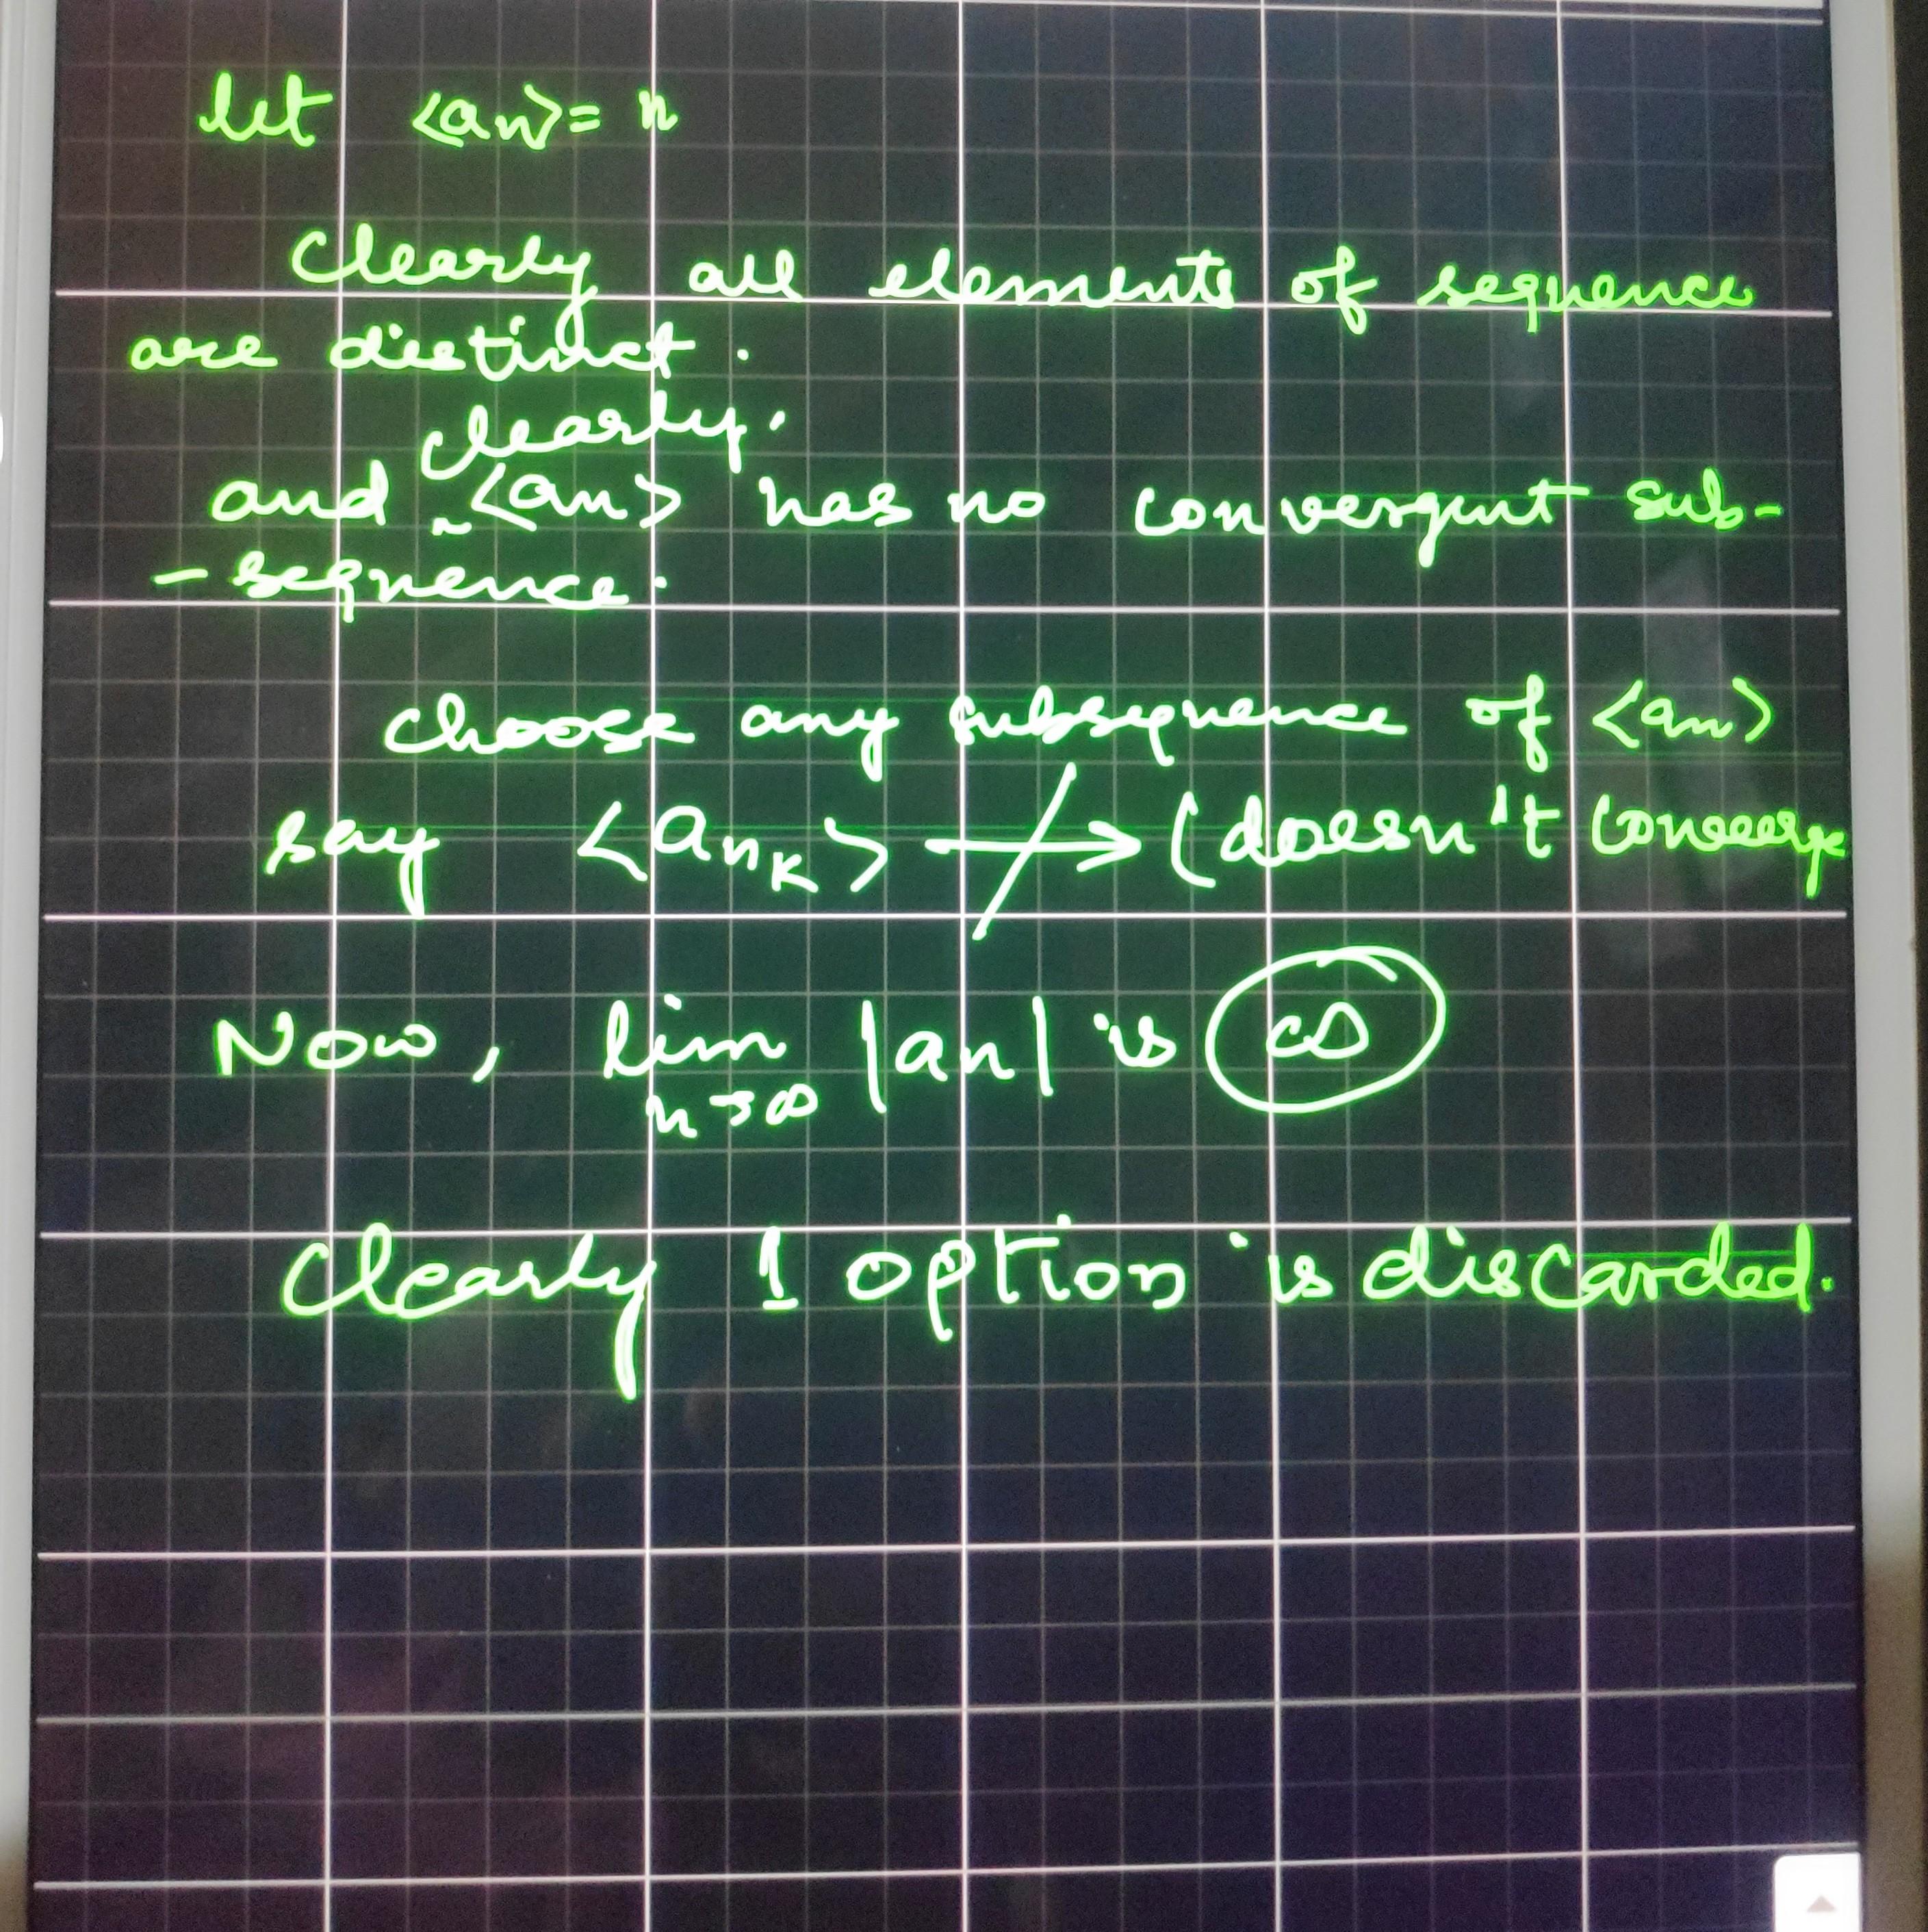 let <an> = n
Clearly all elements of sequence
are distinct.
clearly.
and <an> has no convergent sub-
- sequence.
choose any subsequence of <an>
say <ank> (doesn't converge
Now, lim |an| is ∞
n→∞
Clearly 1 option is discarded.